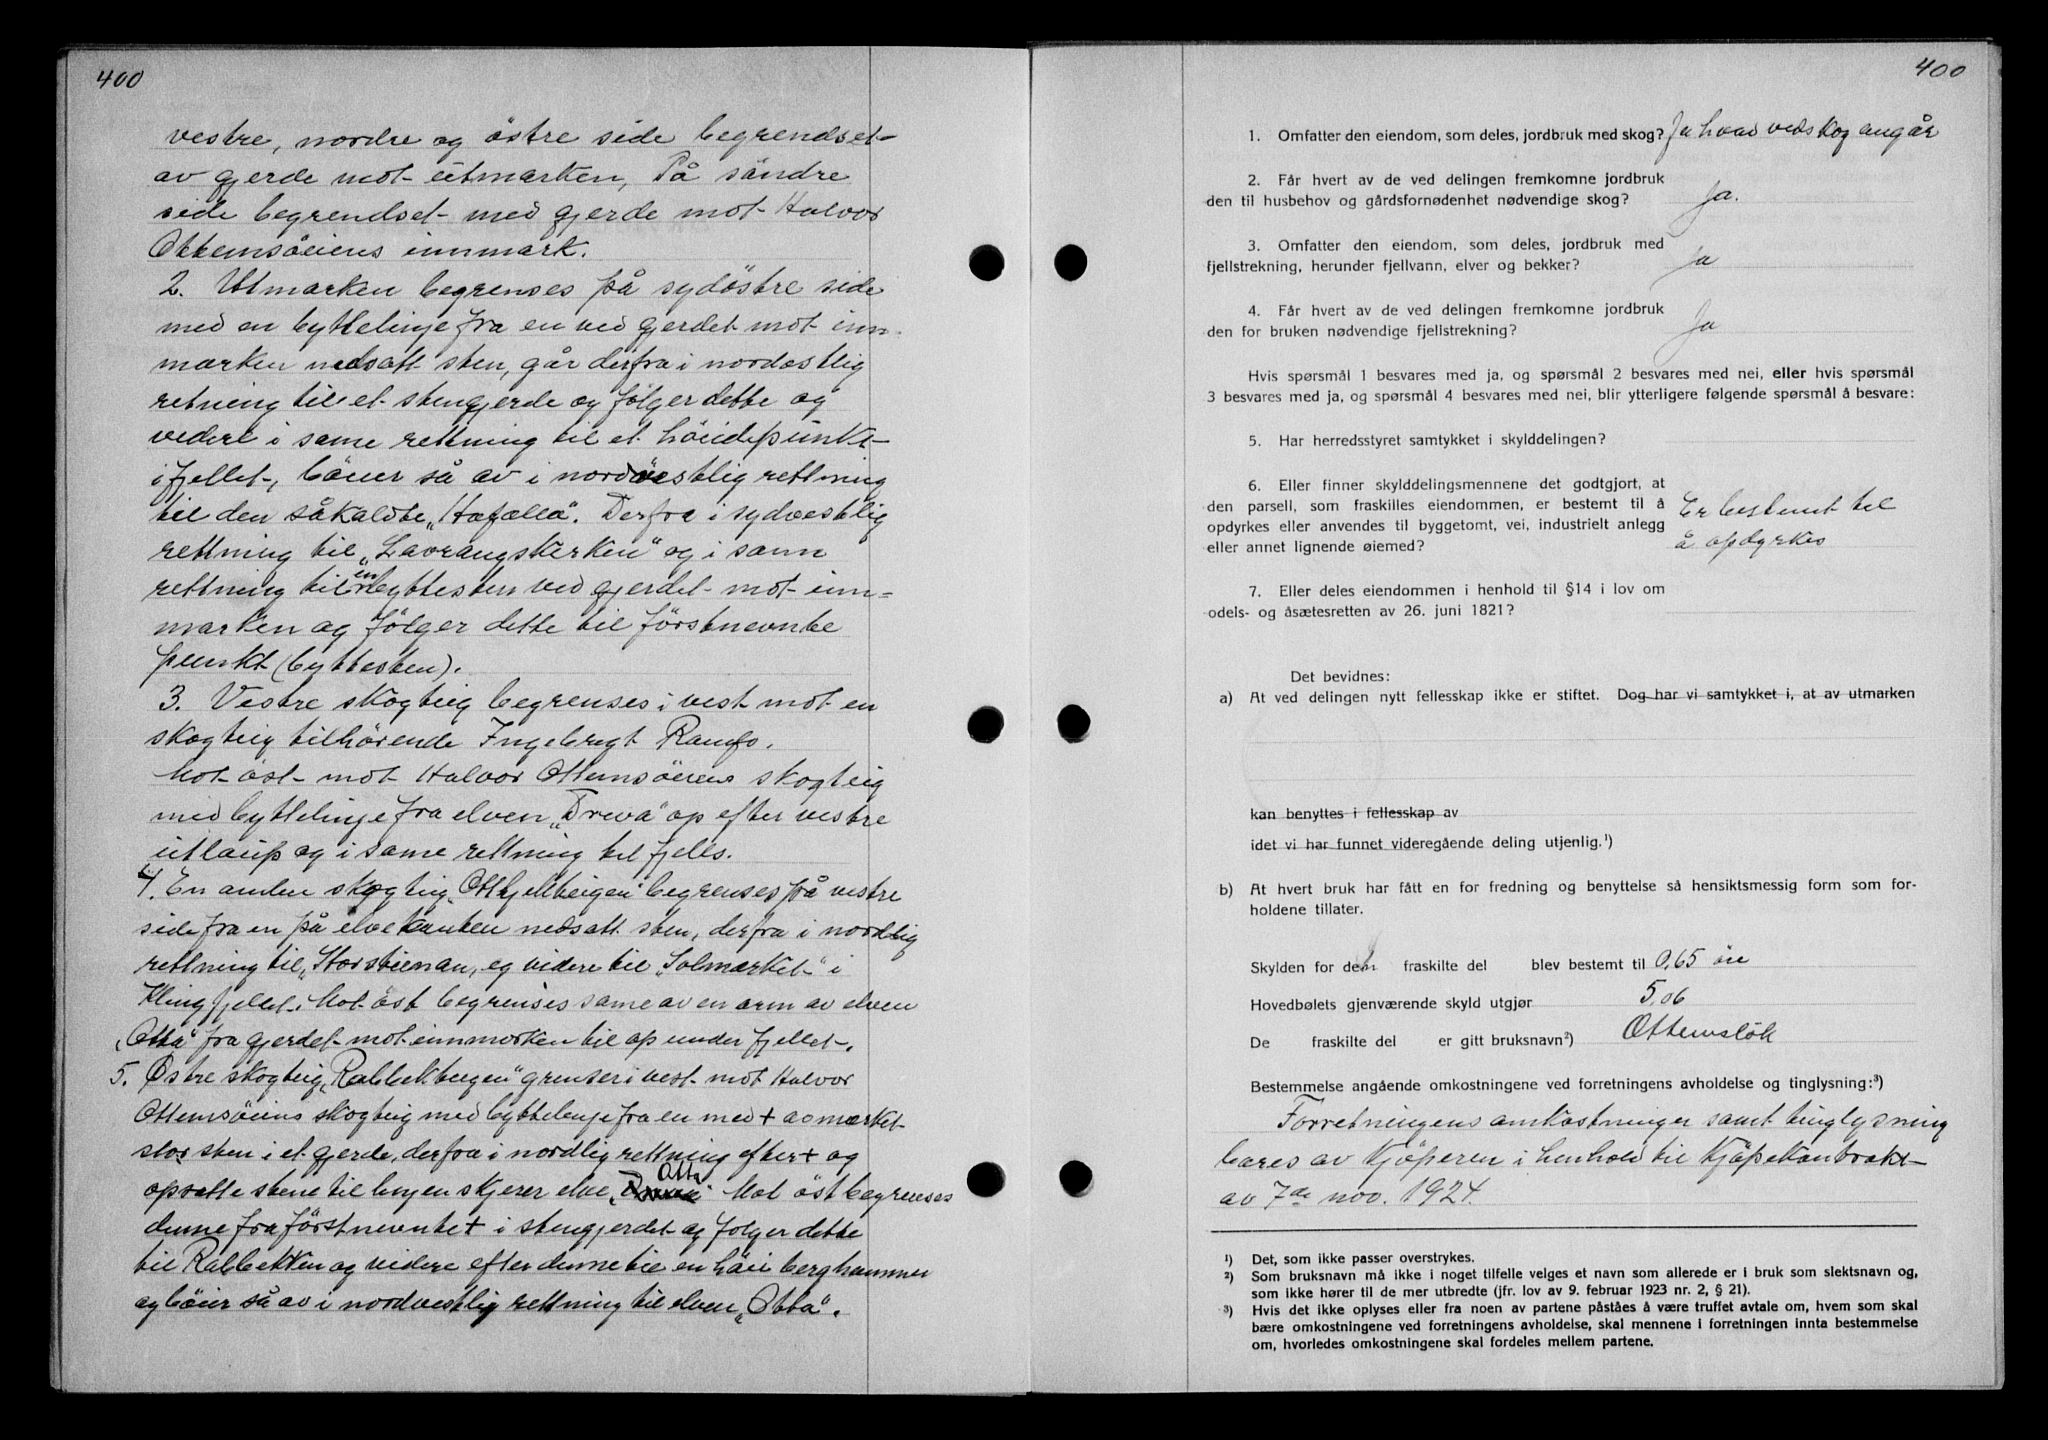 400
vestre, nordre og östre side begrendset
av gjerde mot utmarken, På söndre
side begrendset med gjerde mot Halvor
Ottemsöiens innmark.
2. Utmarken begrenses på sydöstre side
med en byttelinje fra en ved gjerdet mot inn-
marken nedsatt sten, går derfra i nordøstlig
retning til et stengjerde og fölger dette og
videre i same rettning til et höidepunkt
i fjellet, böier så av i nordvestlig rettning
til den såkaldte „Hafælla“. Derfra i sydvestlig
rettning til „Lavrangsterken“ og i samme
rettning til en byttesten ved gjerdet mot inn=
marken og fölger dette til förstnevnte
punkt (byttesten).
3. Vestre skogteig begrenses i vest mot en
skogteig tilhörende Ingebregt Ramfo.
Mot öst mot Halvor Ottemsöiens skogteig
med byttelinje fra elven „Dreva“ op efter vestre
utlaup og i same rettning til fjells.
4. En anden skogteig „Ottkjellteigen“ begrenses på vestre
side fra en på elvekanten nedsatt sten, derfra i nordlig
rettning til „Storstienan, og videre til „Solmærket“ i
Klingfjellet. Mot öst begrenses same av en arm av elven
„Otta“ fra gjerdet mot innmarken til op under fjellet.
5. Østre skogteig „Rabbekkteigen“ grenser i vest mot Halvor
Ottemsöiens skogteig med byttelinje fra en med + avmerket
stor sten i et gjerde, derfra i nordlig rettning efter + og
opsatte stene til linjen skjerer elve „Otta“ Mot öst begrenses
denne fra förstnevnte + i stengjerdet og fölger dette
til Rabbekken og videre efter denne til en höi berghammer
og böier så av i nordvestlig rettning til elven „Otta“.
400
1. Omfatter den eiendom, som deles, jordbruk med skog? Ja hvad vedskog angår
2. Får hvert av de ved delingen fremkomne jordbruk
den til husbehov og gårdsfornødenhet nødvendige skog? Ja.
3. Omfatter den eiendom, som deles, jordbruk med
fjellstrekning, herunder fjellvann, elver og bekker? Ja
4. Får hvert av de ved delingen fremkomne jordbruk
den for bruken nødvendige fjellstrekning? Ja
Hvis spørsmål 1 besvares med ja, og spørsmål 2 besvares med nei, eller hvis spørsmål
3 besvares med ja, og spørsmål 4 besvares med nei, blir ytterligere følgende spørsmål å besvare:
5. Har herredsstyret samtykket i skylddelingen?
6. Eller finner skylddelingsmennene det godtgjort, at
den parsell, som fraskilles eiendommen, er bestemt til å
opdyrkes eller anvendes til byggetomt, vei, industrielt anlegg
eller annet lignende øiemed?
Er bestemt til
å opdyrkes
7. Eller deles eiendommen i henhold til §14 i lov om
odels- og åsætesretten av 26. juni 1821?
Det bevidnes:
a) At ved delingen nytt fellesskap ikke er stiftet. Dog har vi samtykket i, at av utmarken
kan benyttes i fellesskap av
idet vi har funnet videregående deling utjenlig.¹)
b) At hvert bruk har fått en for fredning og benyttelse så hensiktsmessig form som for-
holdene tillater.
Skylden for den fraskilte del blev bestemt til 0,65 öre
Hovedbølets gjenværende skyld utgjør 5,06
De fraskilte del er gitt bruksnavn²) Ottemslök
Bestemmelse angående omkostningene ved forretningens avholdelse og tinglysning:³)
Forretningens omkostninger samt tinglysning
bæres av kjöperen i henhold til kjöpekontrakt
av 7de nov. 1924.
¹) Det, som ikke passer overstrykes.
²) Som bruksnavn må ikke i noget tilfelle velges et navn som allerede er i bruk som slektsnavn og,
som ikke hører til de mer utbredte (jfr. lov av 9. februar 1923 nr. 2, § 21).
³) Hvis det ikke oplyses eller fra noen av partene påståes å være truffet avtale om, hvem som skal
bære omkostningene ved forretningens avholdelse, skal mennene i forretningen innta bestemmelse
om, hvorledes omkostningene skal fordeles mellem partene.